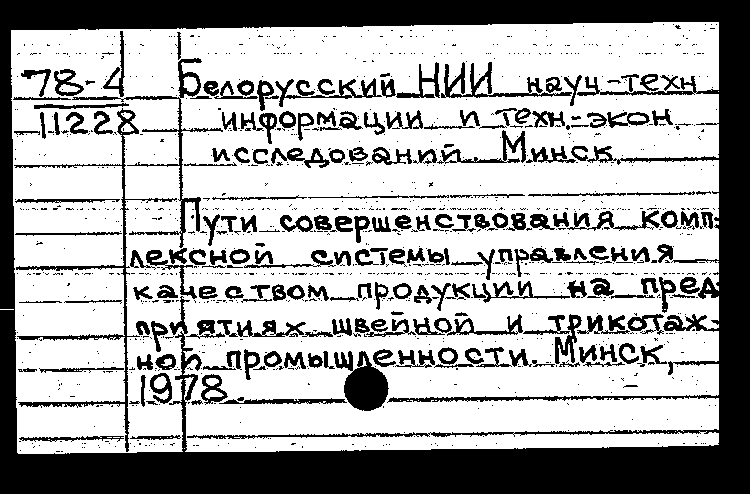 78-4 Белорусский НИИ науч-техн
11228 информации и техн.-экон.
исследований. Минск.
Пути совершенствования комп-
лексной системы управления
качеством продукции на пред-
приятиях швейной и трикотаж-
ной промышленности. Минск,
1978.